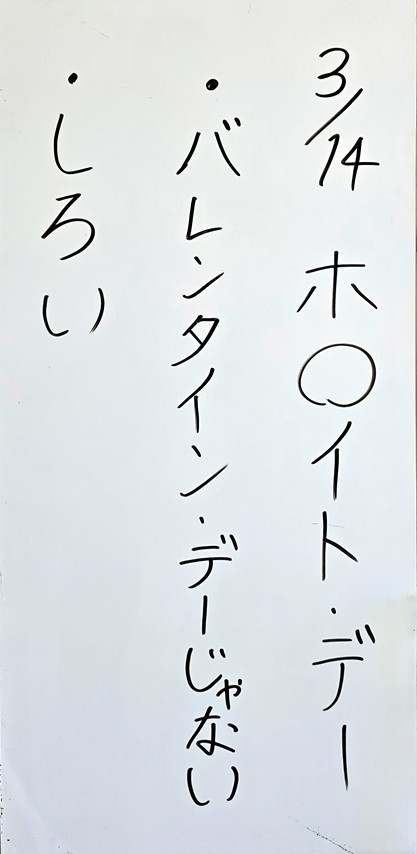 3/14 ホ〇イト・デー
・バレンタイン・デーじゃない
・しろい